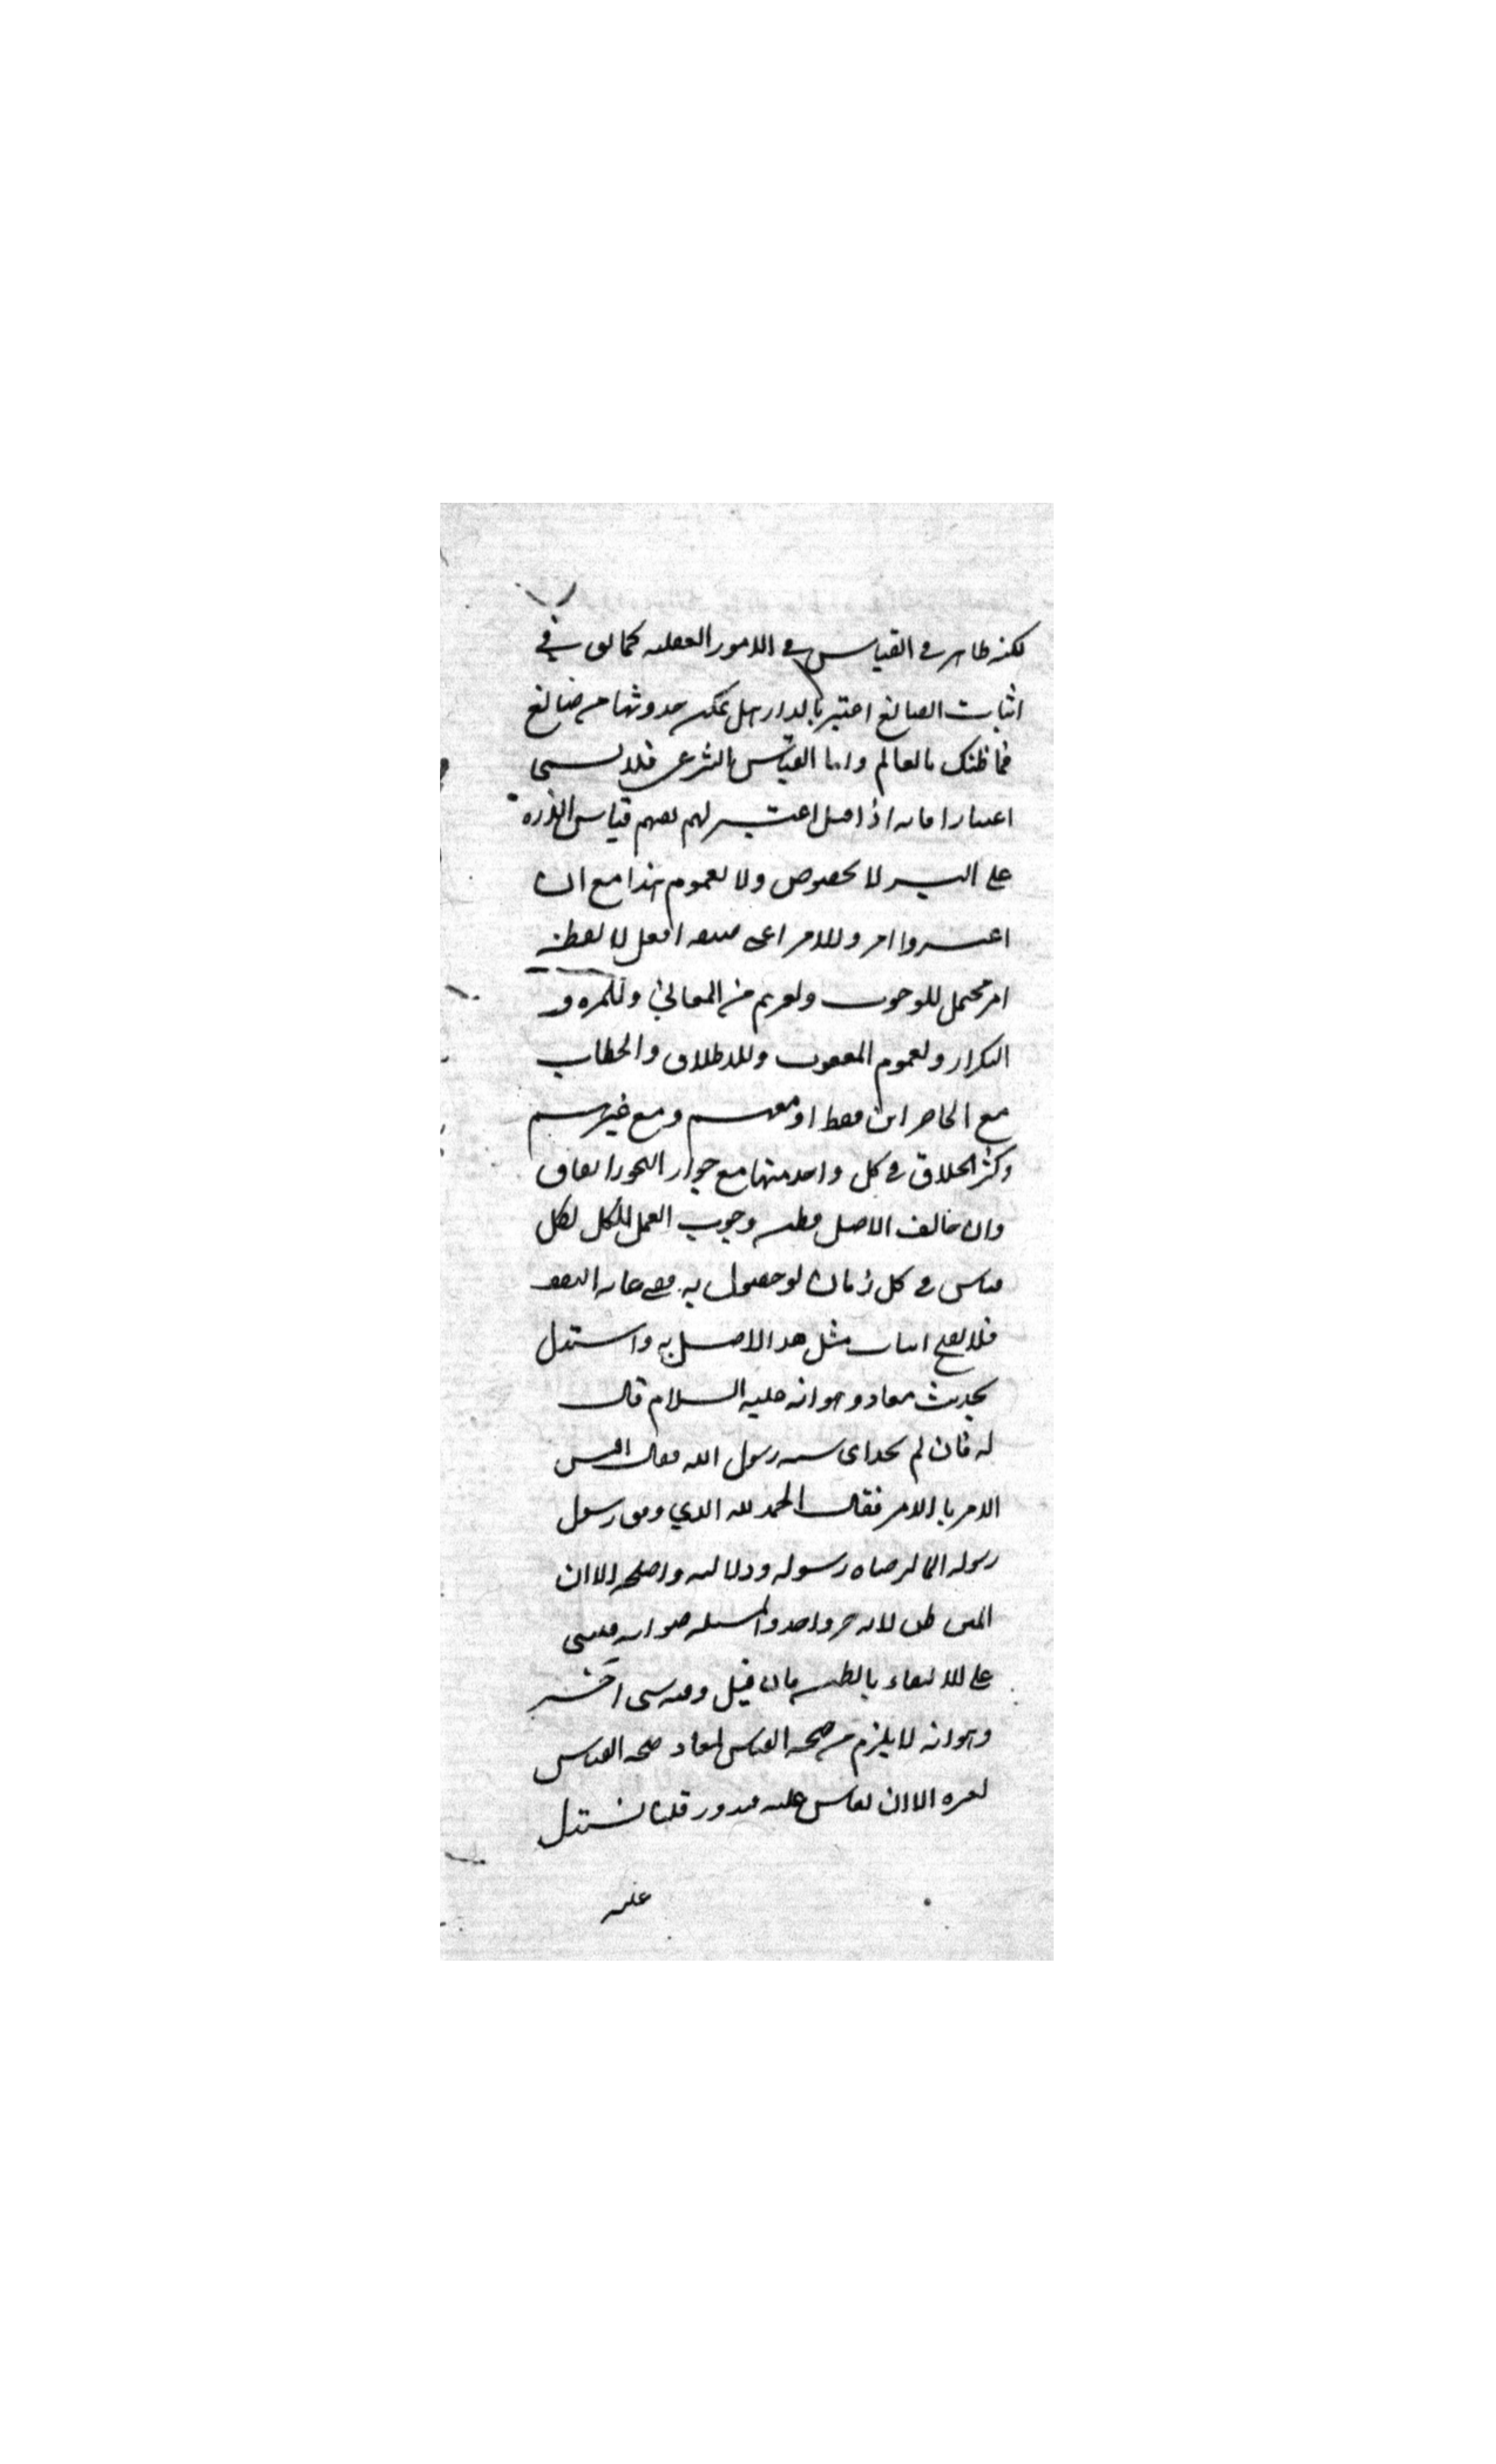 لكنه ظاهر في القياس في الامور العقليه كما يقال في
اثبات الصانع اعتبر بالدار هل يمكن حدوثها من صانع
فما ظنك بالعالم واما القياس الشرعي فلا يسمى
اعتبارا فانه اذا قيل اعتبر لم يفهم قياس الذره
على البر لا بخصوص ولا بعموم هذا مع ان
اعتبروا امر وللامر اعني صيغه افعل لا لفظه
امر محتمل للوجوب ولغيره من المعاني وللمره و
التكرار ولعموم المفعول وللاطلاق والخطاب
مع الحاضرين فقط او معهم ومع غيرهم
وكثر الخلاف في كل واحد منها مع جواز التجوز اتفاقا
وان خالف الاصل فظنه وجوب العمل للكل بكل
قياس في كل زمان لو حصول به ففي غايه الضعف
فلا يصح اثبات مثل هذا الاصل به واستدل
بحديث معاذ وهو انه عليه السلام قال
له فان لم تجد اي سنه رسول الله فقال اقيس
الامر بالامر فقال الحمد لله الذي وفق رسول
رسوله لما يرضاه رسوله ودلالته واضحه الا ان
المتن ظني لانه خبر واحد والمسئله اصوليه فيبتنى
على الاكتفاء بالظن فان قيل وفيه شي اخر
وهو انه لا يلزم من صحه القياس لمعاذ صحه القياس
لغيره الا ان يقاس عليه فيدور قلنا نستدل
عليه